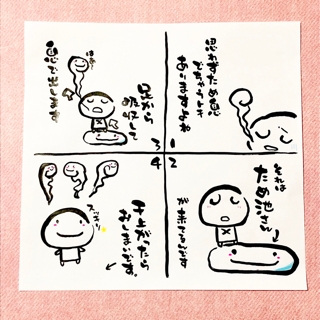 思わずため息
でちゃうトキ
ありますよね
1
2
それは
ため池さん
が来てるんです
3
足から
吸収して
はぁ
息で出します
4
干上がったら
おしまいです。
スッキリ